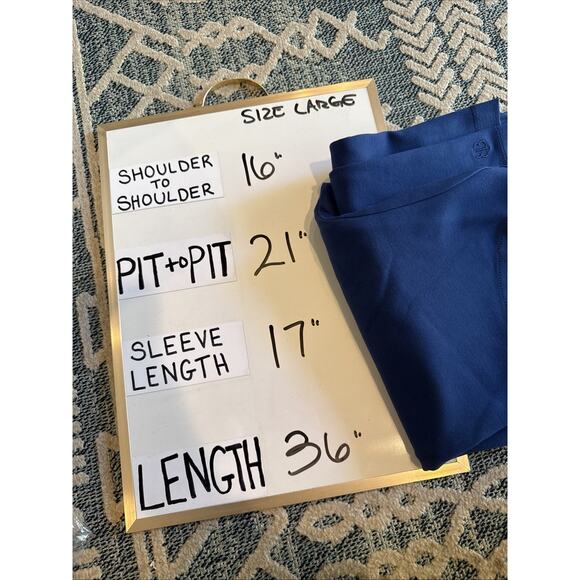 SIZE LARGE
SHOULDER
TO
SHOULDER
16"
PIT to PIT 21"
SLEEVE
LENGTH
17"
LENGTH 36"